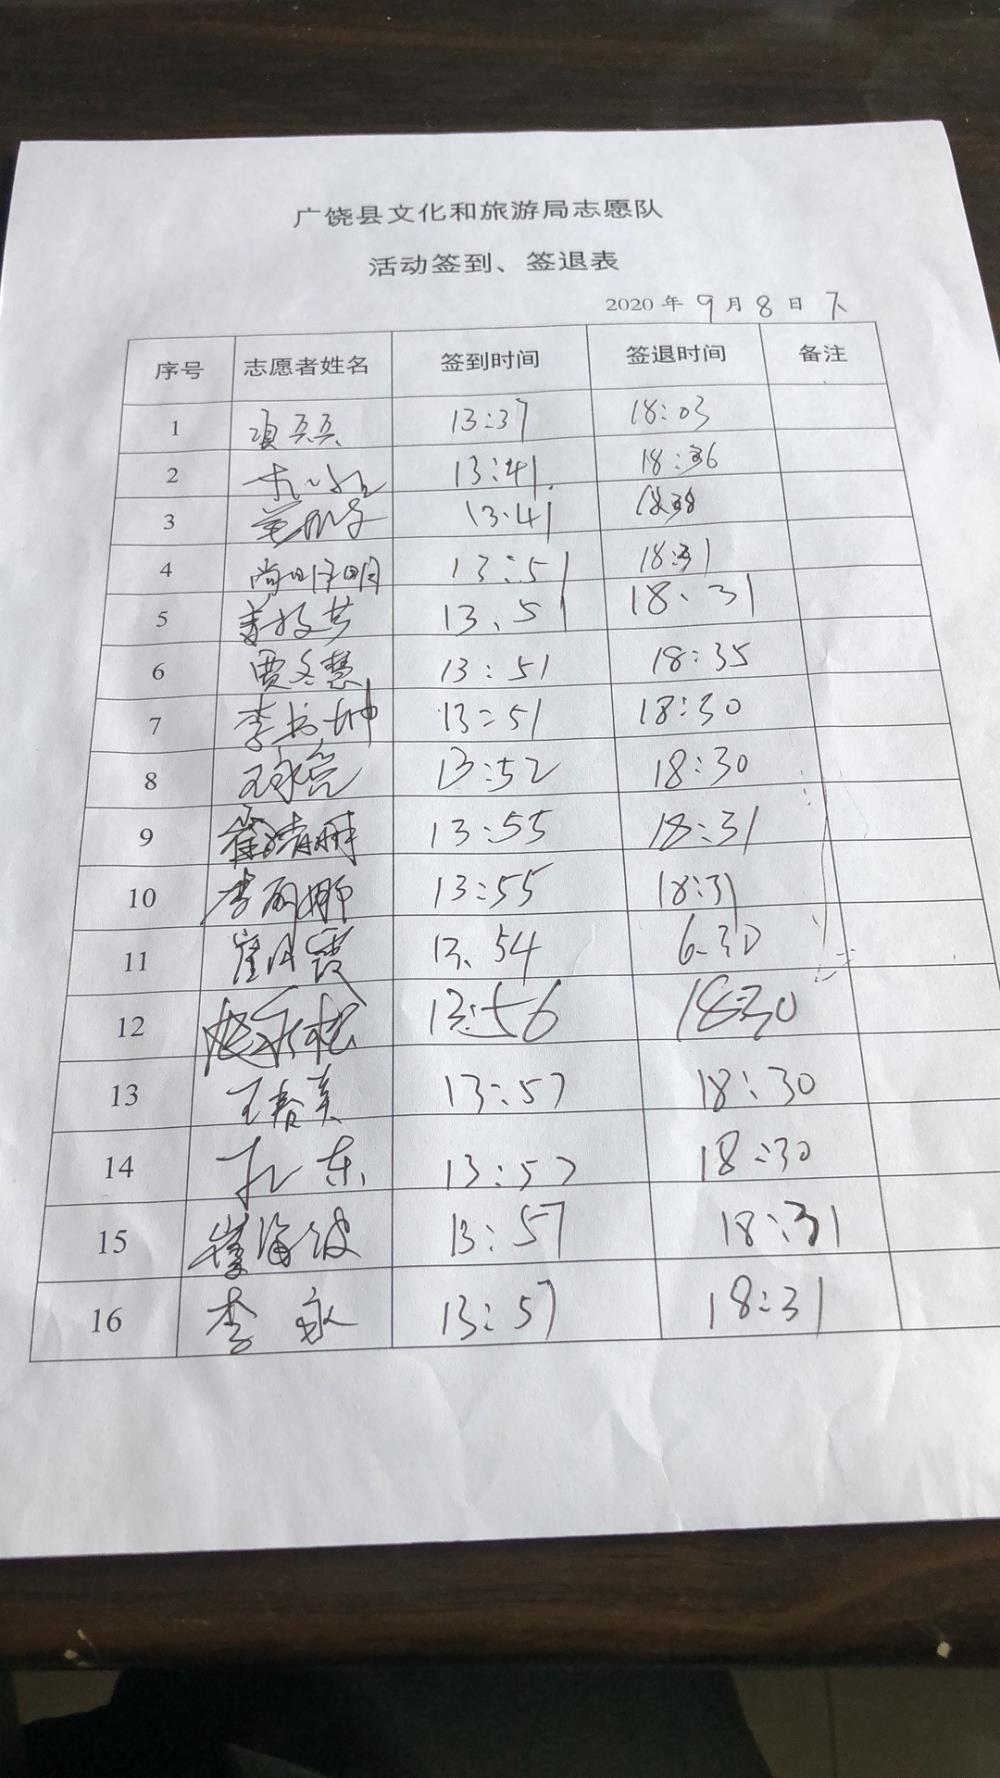 广饶县文化和旅游局志愿队
活动签到、签退表
2020 年 9 月 8 日 下
序号 志愿者姓名 签到时间 签退时间 备注
1 项兵兵 13:37 18:03
2 13:41 18:36
3 13:41 18:38
4 13:51 18:31
5 13、51 18、31
6 贾冬慧 13:51 18:35
7 李书坤 13:51 18:30
8 王永亮 13:52 18:30
9 崔晓丽 13:55 18:31
10 李丽娜 13:55 18:31
11 崔月霞 13、54 6、30
12 赵永松 13:56 18:30
13 王春美 13:57 18:30
14 孔东 13:57 18:30
15 崔海波 13:57 18:31
16 李永 13:57 18:31